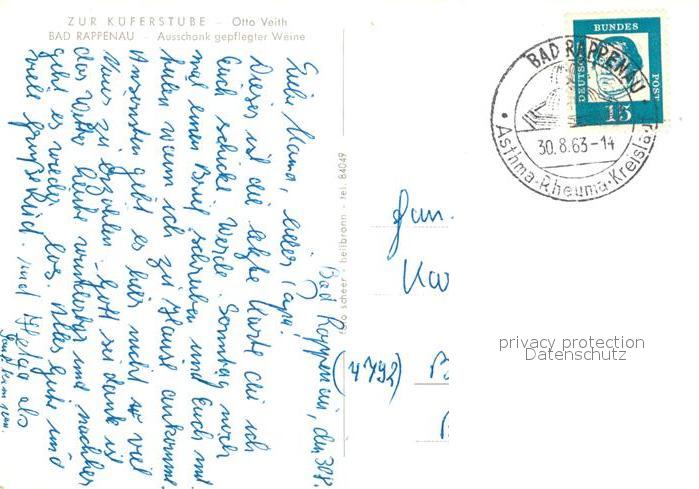 ZUR KÜFERSTUBE – Otto Veith
BAD RAPPENAU – Ausschank gepflegter Weine
Bad Rappenau, den 30.8.
Liebe Mama, lieber Papa!
Dieses ist die letzte Karte die ich
Euch schicke. Werde Sonntag noch
mal einen Brief schreiben und Euch mit
teilen wann ich zu Hause ankomme.
Ansonsten geht es hier nicht so viel
Neues zu erzählen. Gott sei dank ist
das Wetter heute wunderbar und nachher
geht es wieder los. Alles gute und
viele Grüße und Helga als
foto scheer · heilbronn · tel. 84049
DEUTSCHE BUNDES POST
15
BAD RAPPENAU
30.8.63-14
Asthma-Rheuma-Kreislau
Fam.
Ka
(4792) B
privacy protection
Datenschutz